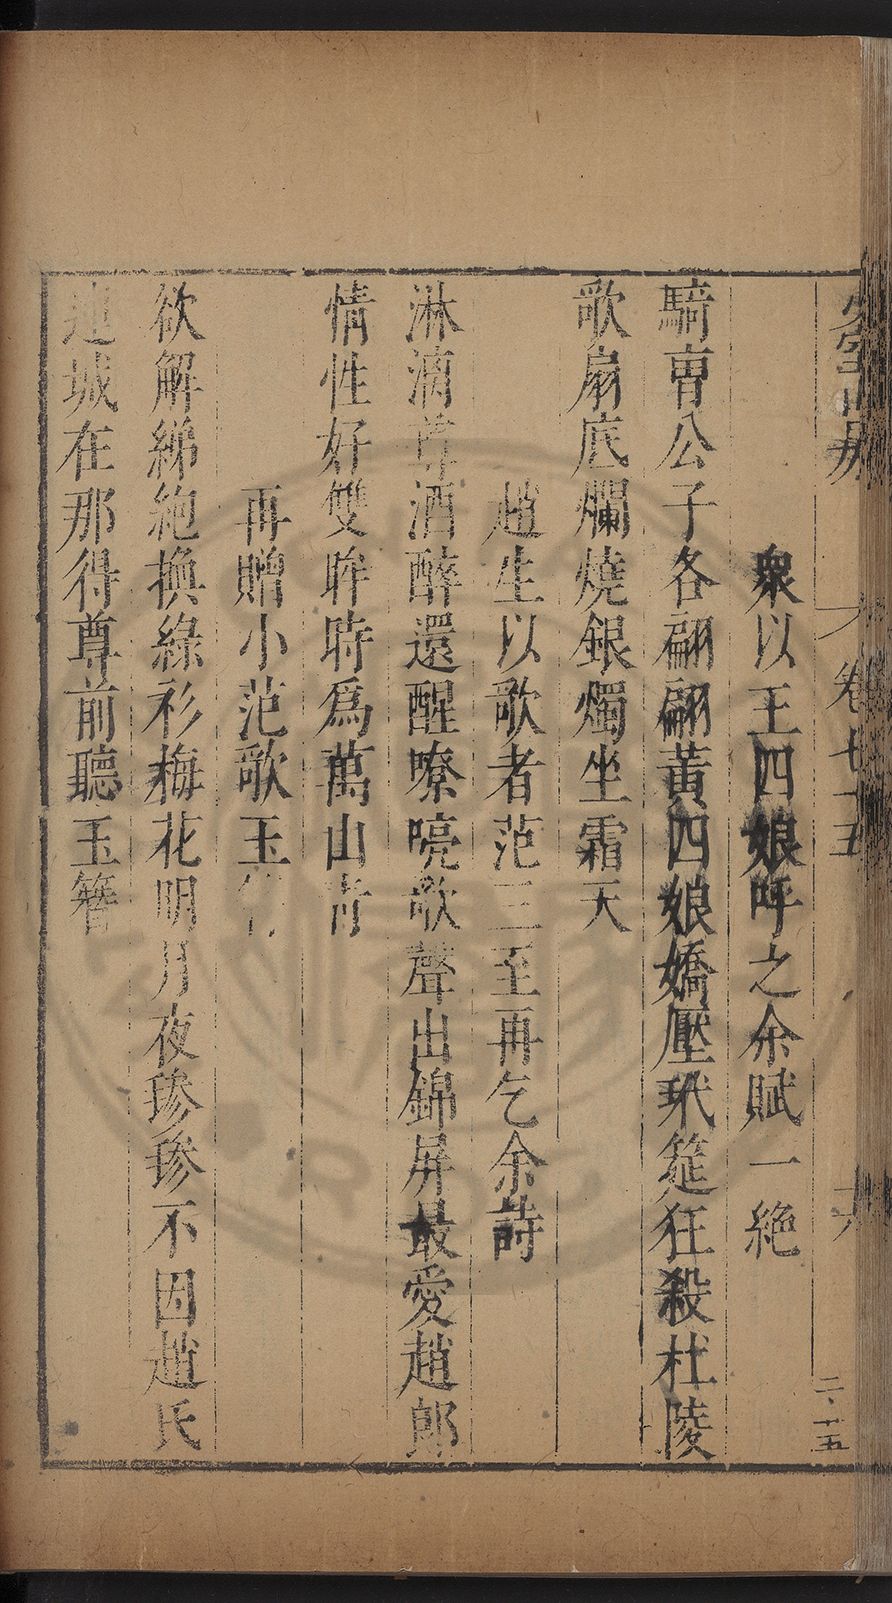 卷七十五
二·十五
衆以王四娘呼之余賦一絶
騎曹公子各翩翩黃四娘嬌壓玳筵狂殺杜陵
歌扇底爛燒銀燭坐霜天
趙生以歌者范三至再乞余詩
淋漓尊酒醉還醒嘹喨歌聲出錦屏最愛趙郎
情性好雙眸時爲萬山青
再贈小范歌玉
欲解綈絶換綠衫梅花明月夜毿毿不因趙氏
連城在那得尊前聽玉簪